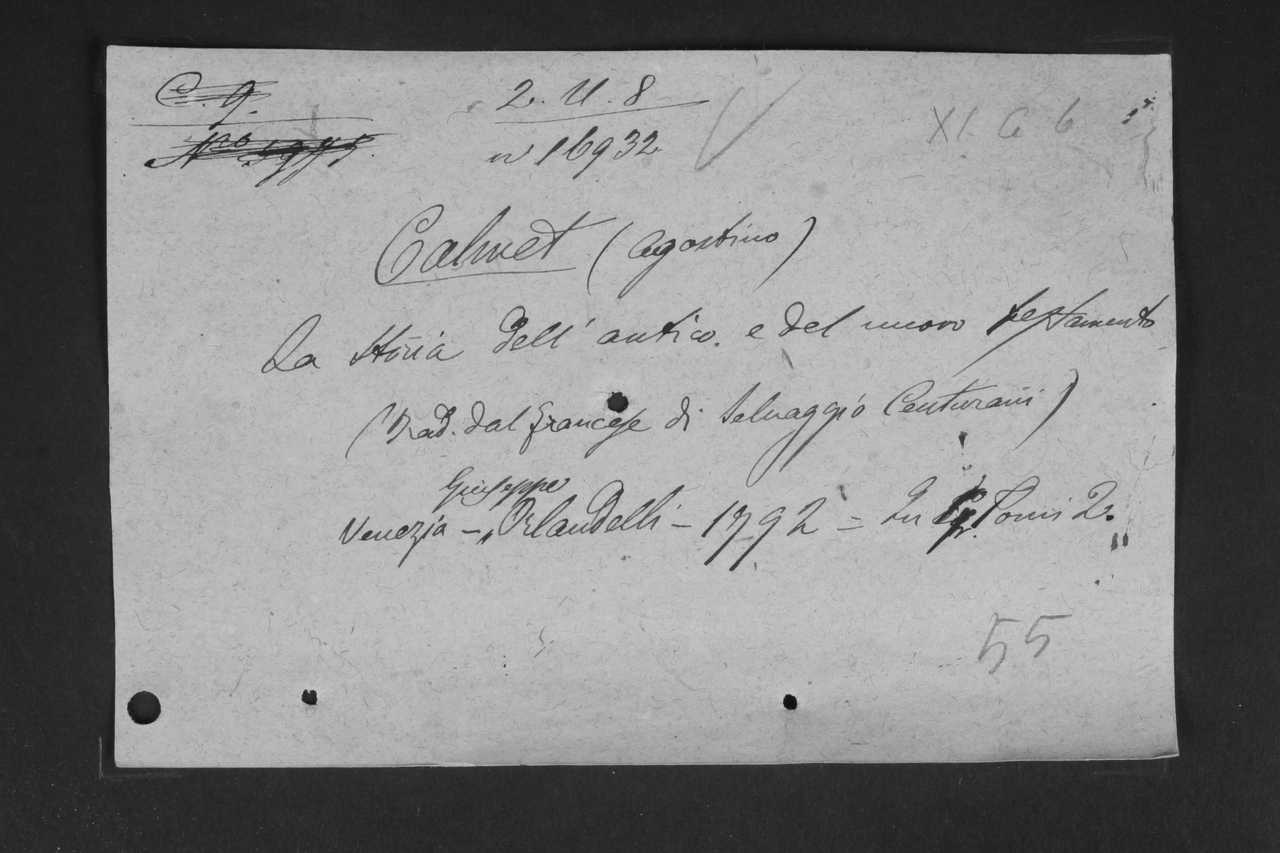 C. 9.
2. U. 8
XI G 6
n° 16932.
Calmet (Agostino)
La Storia dell' antico. e del nuovo testamento
(Trad. dal francese di Selvaggio Canturani)
Giuseppe
Venezia - Orlandelli - 1792 = In Tomi 2.
55